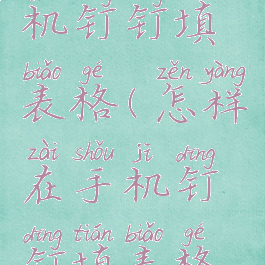 机钉钉填
biǎo gé zěn yàng
表格(怎样
zài shǒu jī dīng
在手机钉
dīng tián biǎo gé
钉填表格